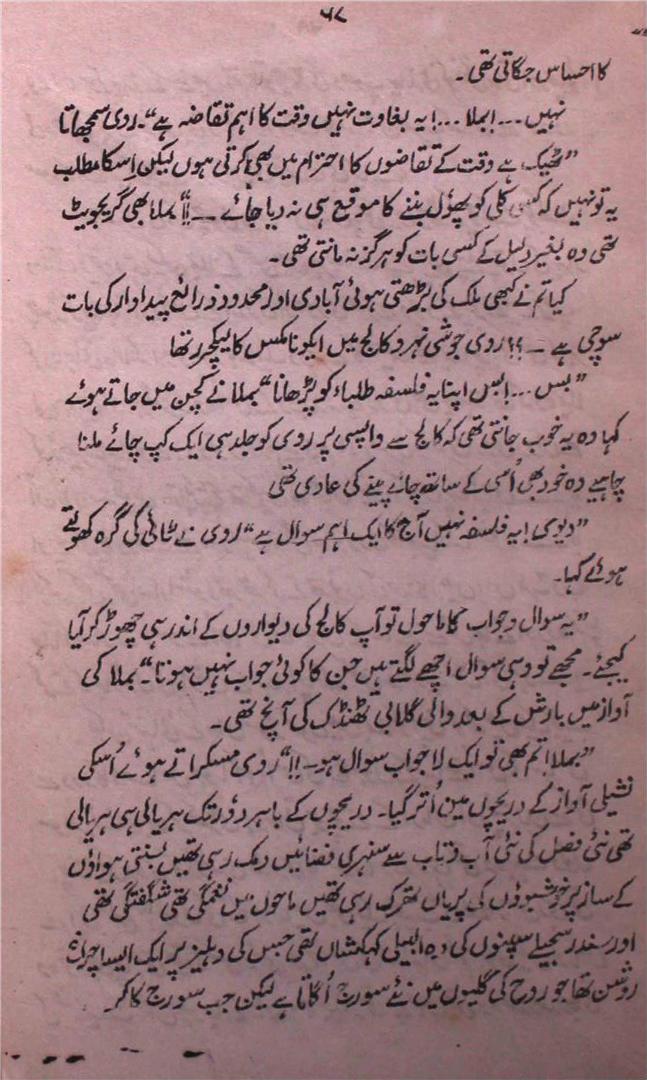 ۶۷
کا احساس جگاتی تھی۔
نہیں... بملا... یہ بغاوت نہیں وقت کا اہم تقاضہ ہے“۔ روی سمجھاتا
”ٹھیک ہے وقت کے تقاضوں کا احترام میں بھی کرتی ہوں لیکن اسکا مطلب
یہ تو نہیں کہ کسی کلی کو پھول بننے کا موقع ہی نہ دیا جائے ۔۔!!“ بملا بھی گریجویٹ
تھی وہ بغیر دلیل کے کسی بات کو ہرگز نہ مانتی تھی۔
کیا تم نے کبھی ملک کی بڑھتی ہوئی آبادی اور محدود ذرائع پیداوار کی بات
سوچی ہے ۔۔؟؟ روی جوشی نہرو کالج میں ایکونامکس کا لیکچرر تھا
”بس... بس اپنا یہ فلسفہ طلباء کو پڑھانا“ بملا نے کچن میں جاتے ہوئے
کہا وہ یہ خوب جانتی تھی کہ کالج سے واپسی پر روی کو جلد ہی ایک کپ چائے ملنا
چاہیے وہ خود بھی اُسی کے ساتھ چائے پینے کی عادی تھی
”دیوی! یہ فلسفہ نہیں آج کا ایک اہم سوال ہے“ روی نے ٹائی کی گرہ کھولتے
ہوئے کہا۔
”یہ سوال و جواب کا ماحول تو آپ کالج کی دیواروں کے اندر ہی چھوڑ کر آیا
کیجئے۔ مجھے تو وہی سوال اچھے لگتے ہیں جن کا کوئی جواب نہیں ہوتا۔“ بملا کی
آواز میں بارش کے بعد والی گلابی ٹھنڈک کی آنچ تھی۔
”بملا! تم بھی تو ایک لاجواب سوال ہو۔!!“ روی مسکراتے ہوئے اُسکی
نشیلی آواز کے دریچوں مین اُتر گیا۔ دریچوں کے باہر دُور تک ہریالی ہی ہریالی
تھی نئی فصل کی نئی آب و تاب سے سنہری فضائیں دمک رہی تھیں بسنتی ہواؤں
کے ساز پر خوشبوؤں کی پریاں تھرک رہی تھیں ماحول میں نغمگی تھی شگفتگی تھی
اور سندر سجیلے سپنوں کی وہ البیلی کہکشاں تھی جس کی دہلیز پر ایک ایسا چراغ
روشن تھا جو روح کی گلیوں میں نئے سورج اُگاتا ہے لیکن جب سورج کا کر